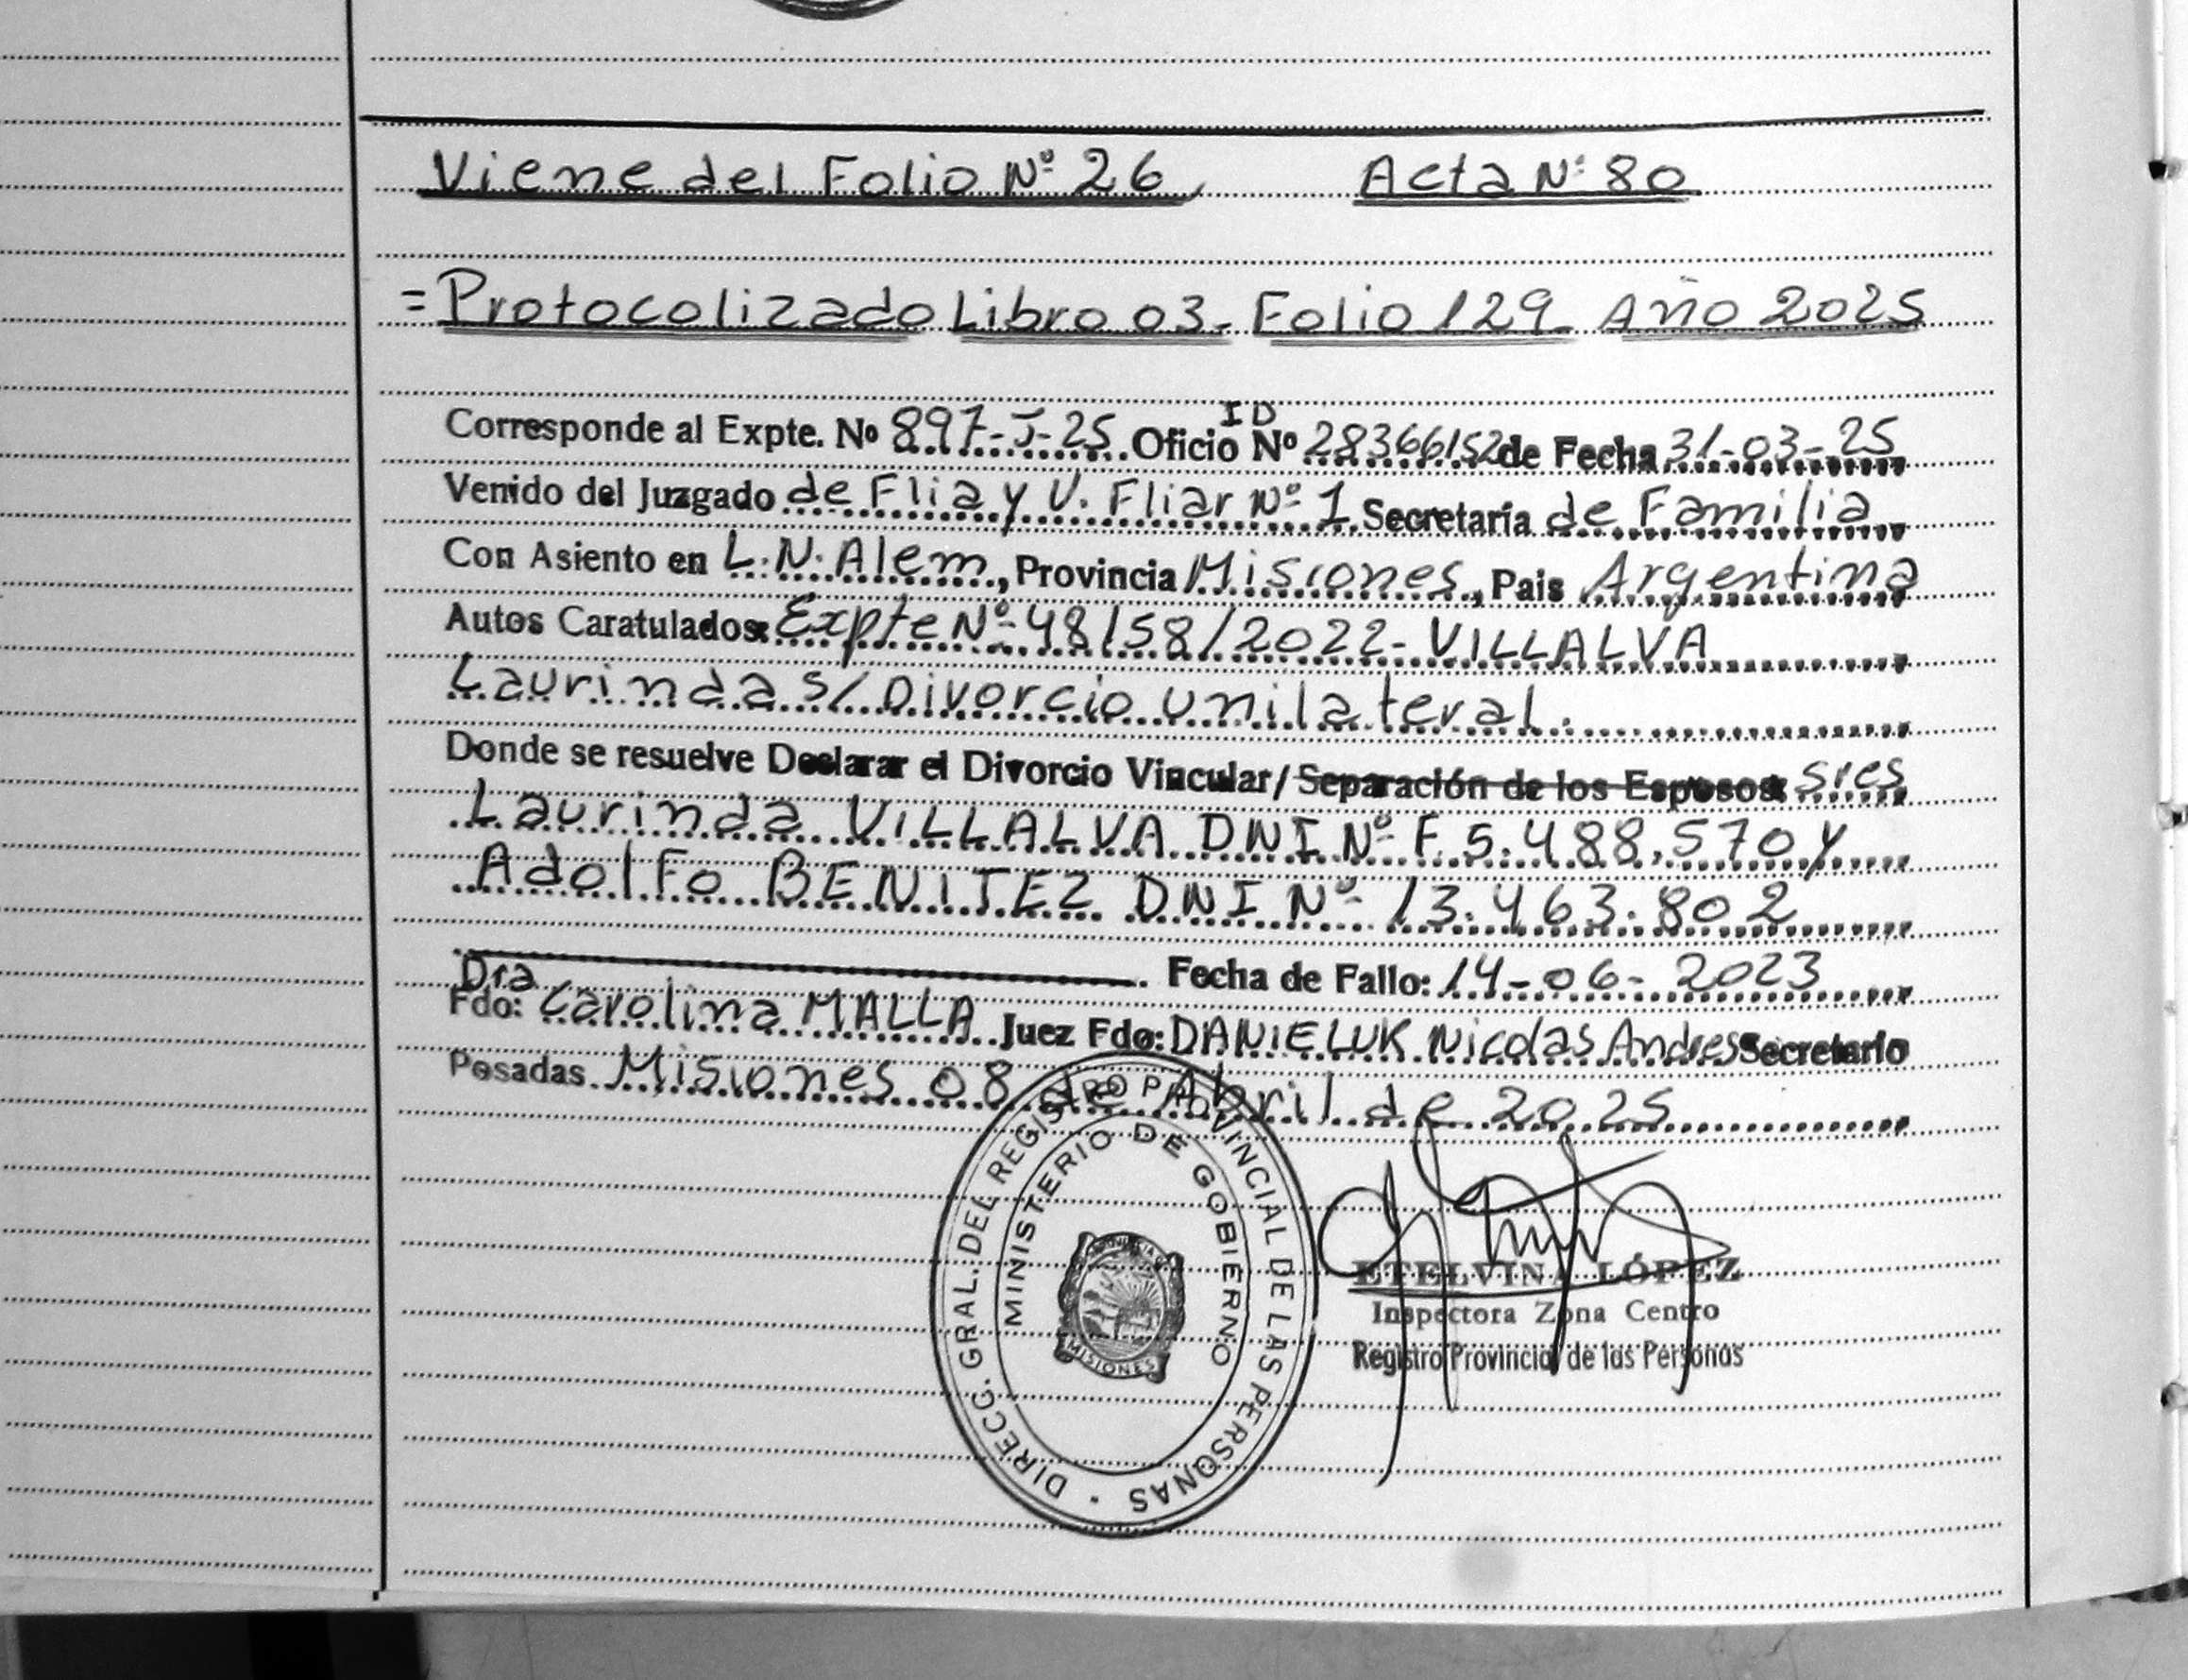 Viene del Folio Nº 26 Acta Nº 80
= Protocolizado Libro 03- Folio 129 Año 2025
Corresponde al Expte. Nº 897-J-25 Oficio ID Nº 28366152 de Fecha 31-03-25
Venido del Juzgado de Flia y V. Fliar Nº 1 Secretaría de Familia
Con Asiento en L.N. Alem, Provincia Misiones, Pais Argentina
Autos Caratulados: Expte Nº 48158/2022- VILLALVA
Laurinda s/ Divorcio unilateral.
Donde se resuelve Declarar el Divorcio Vincular/ Separación de los Esposos: Sres
Laurinda VILLALVA DNI Nº F 5.488.570 y
Adolfo BENITEZ DNI Nº 13.463.802
Fecha de Fallo: 14-06-2023
Dra
Fdo: Carolina MALLA Juez Fdo: DANIELUK Nicolas Andres Secretario
Posadas Misiones 08 de Abril de 2025
DIRECC. GRAL. DEL REGISTRO PROVINCIAL DE LAS PERSONAS
MINISTERIO DE GOBIERNO
MISIONES
ETELVINA LÓPEZ
Inspectora Zona Centro
Registro Provincial de las Personas